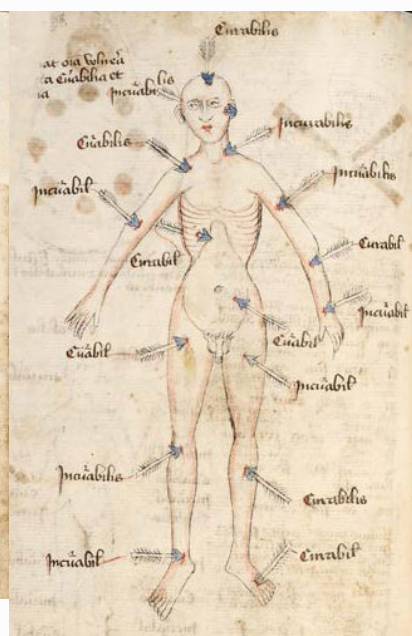 Curabilis
at oīa volnēa
ca Cūabilia et
ia
Incūabilis
Incurabilis
Cūabilis
Incūabilis
Incūabil
Curabil
Curabil
Incūabil
Cūabil
Cūabil
Incūabil
Incūabilis
Curabilis
Incūabil
Curabil